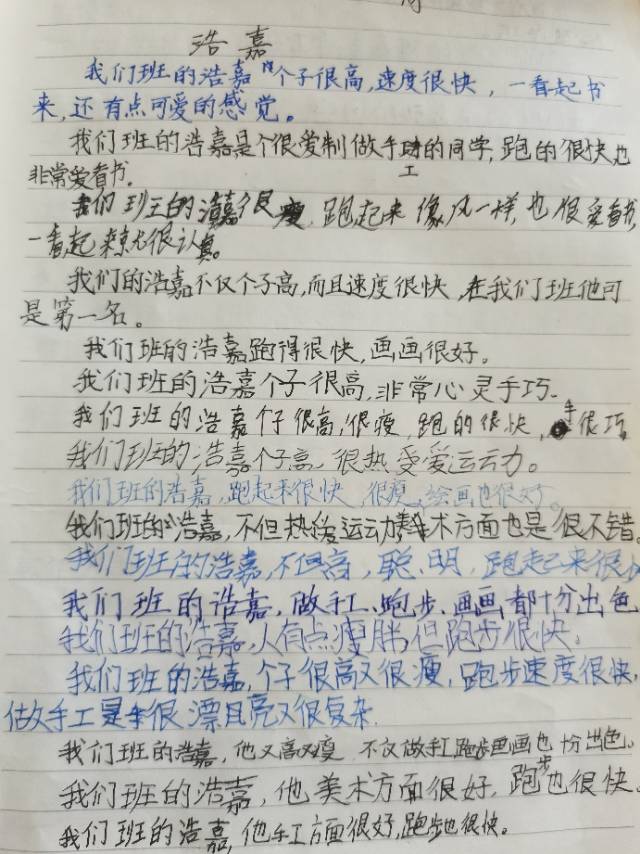 浩嘉
我们班的浩嘉个子很高,速度很快,一看起书
来,还有点可爱的感觉。
我们班的浩嘉是个很爱制做手工的同学,跑的很快,也
非常爱看书。
我们班的浩嘉很瘦,跑起来像风一样,也很爱看书,
一看起来就很认真。
我们的浩嘉不仅个子高,而且速度很快,在我们班他可
是第一名。
我们班的浩嘉跑得很快,画画很好。
我们班的浩嘉个子很高,非常心灵手巧。
我们班的浩嘉个子很高,很瘦,跑的很快,手很巧。
我们班的浩嘉个子高,很热爱运动。
我们班的浩嘉,跑起来很快,很瘦,绘画也很好。
我们班的浩嘉,不但热爱运动,美术方面也是很不错。
我们班的浩嘉,不但高,聪明,跑起来很
我们班的浩嘉,做手工、跑步、画画都十分出色
我们班的浩嘉,人有点瘦月半但跑步很快。
我们班的浩嘉,个子很高又很瘦,跑步速度很快,
做手工是很漂且亮又很复杂.
我们班的浩嘉,他又高又瘦,不仅做手工跑步画画也十分出色。
我们班的浩嘉,他美术方面很好,跑步也很快。
我们班的浩嘉,他手工方面很好,跑步也很快。